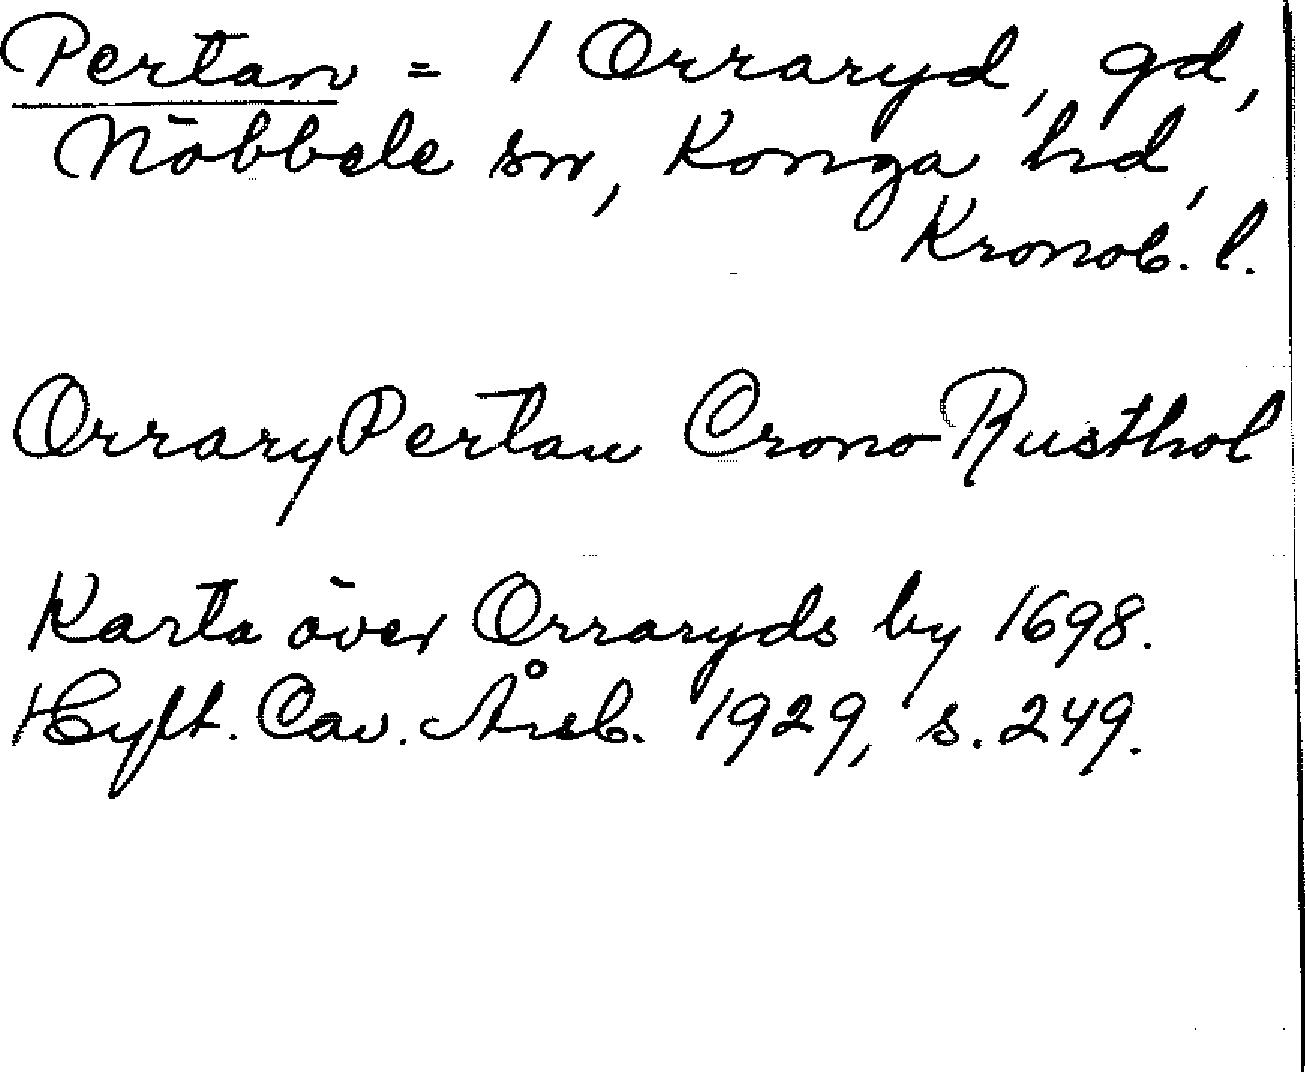 Pertan = 1 Orraryd, gd,
Nöbbele sn, Konga hd,
Kronob. l.
OrraryPertan Crono Rusthol
Karta över Orraryds by 1698.
Hylt. Cav. Årsb. 1929, s. 249.